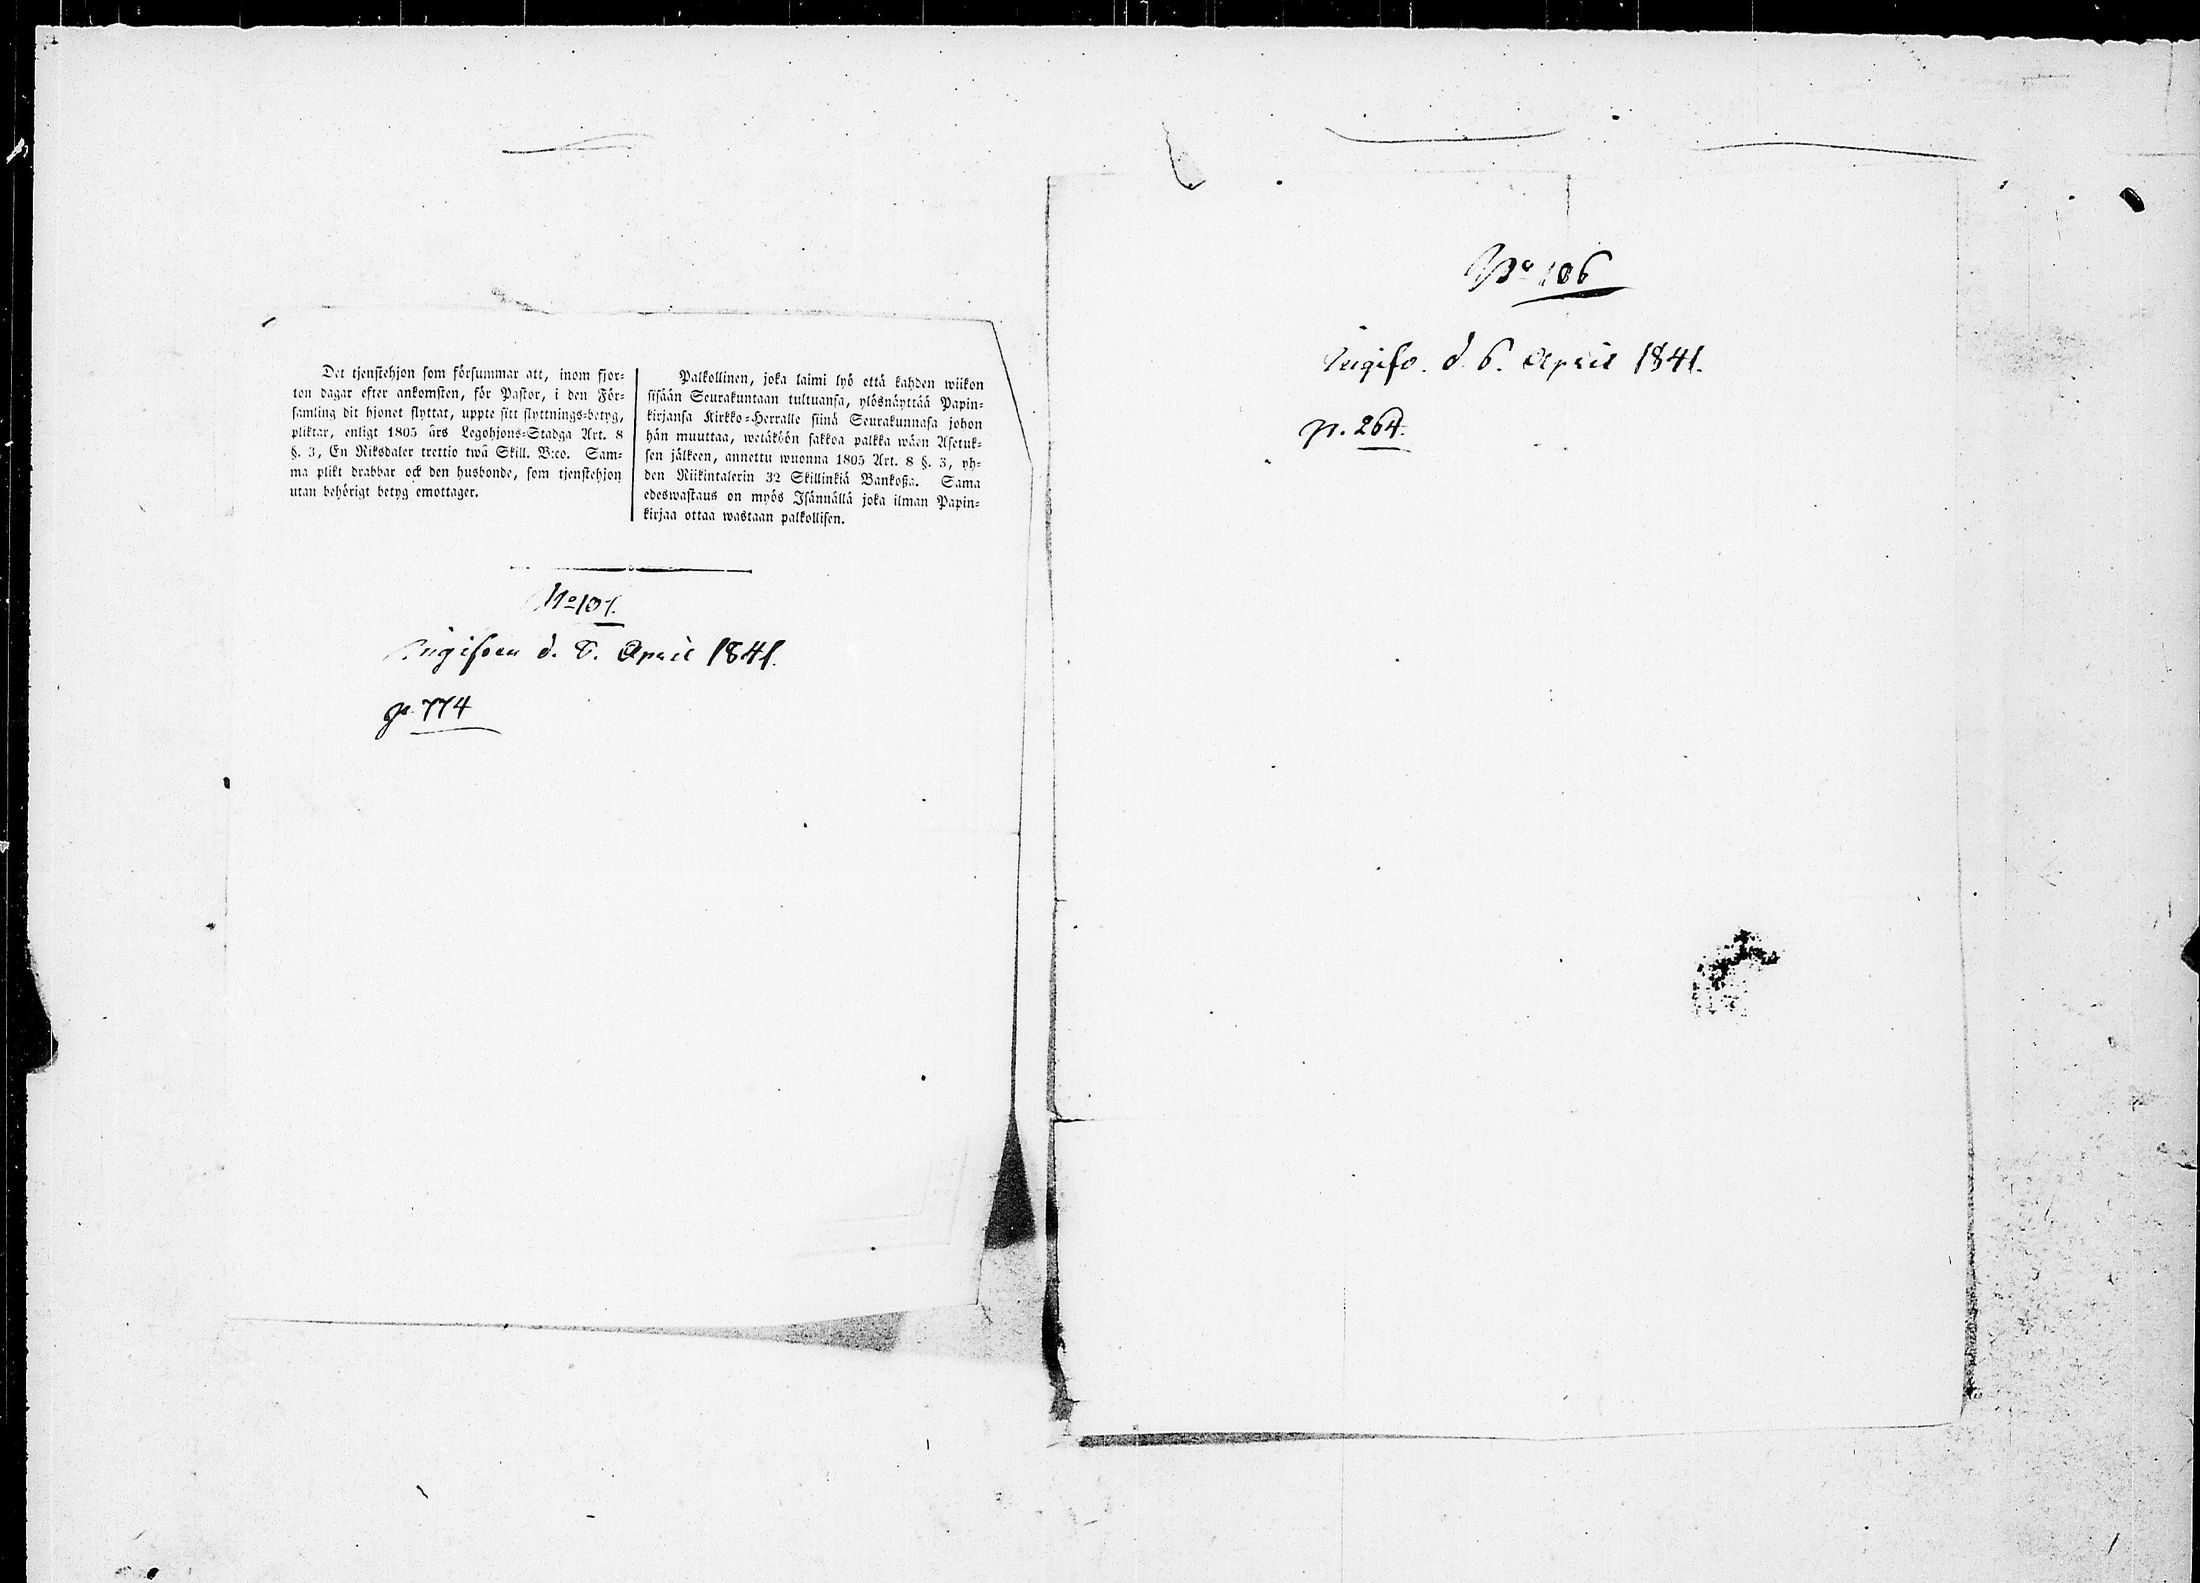 Det tjenstehjon som försummar att, inom fjor-
ton dagar efter ankomsten, för Pastor, i den För-
samling dit hjonet flyttat, uppte sitt flyttnings-betyg,
pliktar, enligt 1805 års Legohjons-Stadga Art. 8
§. 3, En Riksdaler trettio twå Skill. B:co. Sam-
ma plikt drabbar ock den husbonde, som tjenstehjon
utan behörigt betyg emottager.
Palkollinen, joka laimi lyö että kahden wiikon
sisään Seurakuntaan tultuansa, ylösnäyttää Papin-
kirjansa Kirkko-Herralle siinä Seurakunnasa johon
hän muuttaa, wetäköön sakkoa palkka wäen Asetuk-
sen jälkeen, annettu wuonna 1805 Art. 8 §. 3, yh-
den Riikintalerin 32 Skillinkiä Bankoßa. Sama
edeswastaus on myös Isännällä joka ilman Papin-
kirjaa ottaa wastaan palkollisen.
No 107.
d. 6. April 1841.
p. 774
No 106
d. 6. April 1841.
p. 264.